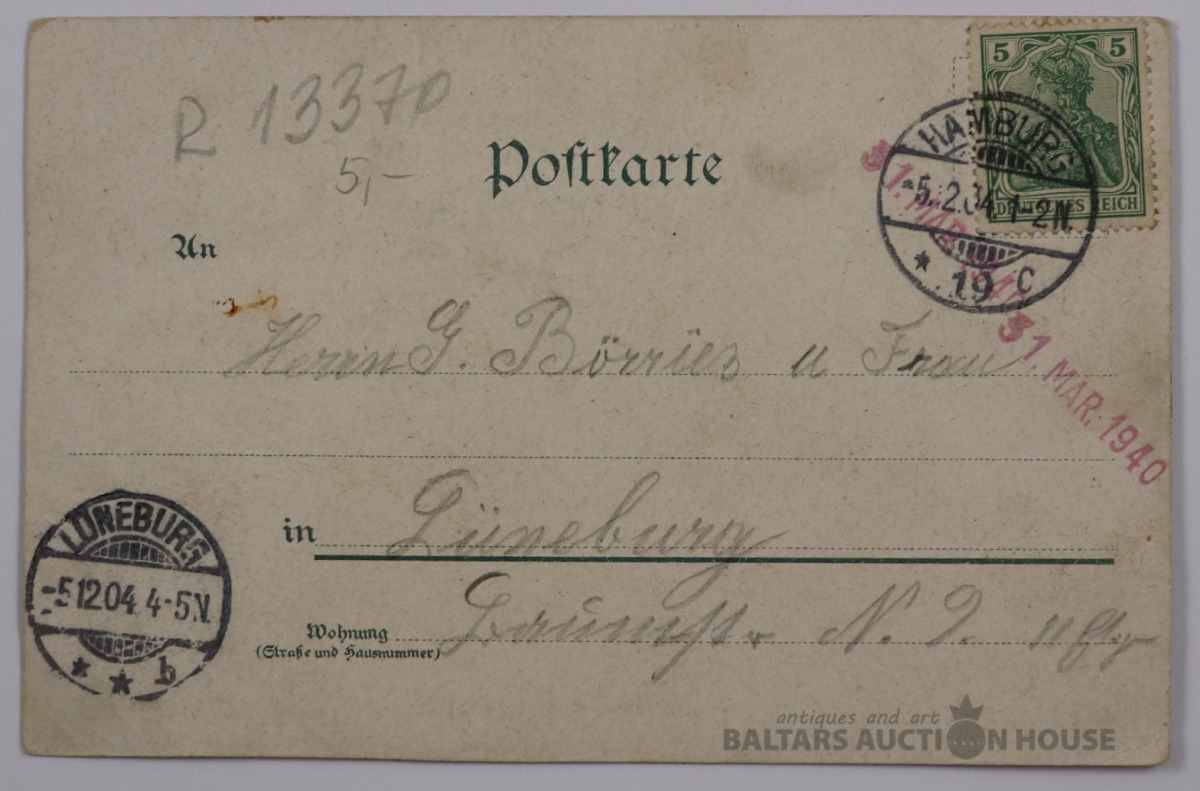 R 13370
5,-
Postkarte
5 5
DEUTSCHES REICH
HAMBURG
-5.12.04. 1-2N.
* 19 c
31. MAR. 1940
31. MAR. 1940
An
Herrn G. Börries u Frau
in Lüneburg
LÜNEBURG
-5.12.04. 4-5N.
* * b
Wohnung
(Straße und Hausnummer)
N. 2.
antiques and art
BALTARS AUCTION HOUSE